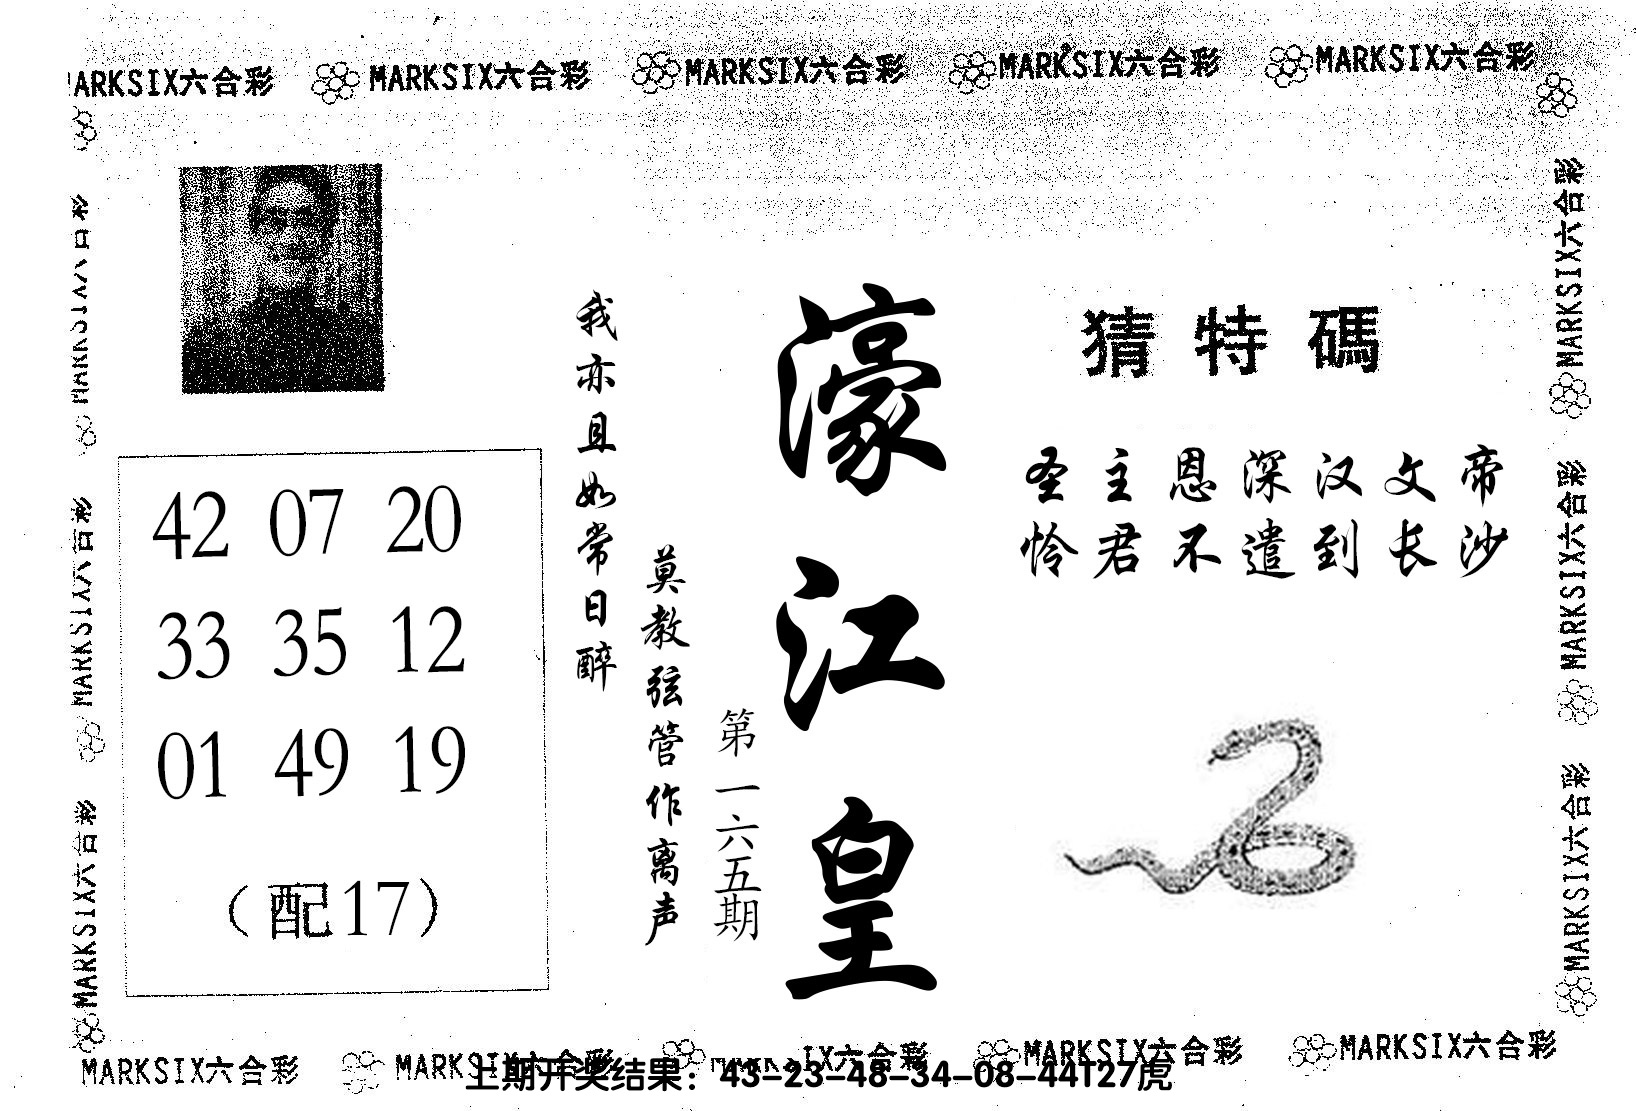 MARKSIX六合彩 MARKSIX六合彩 MARKSIX六合彩 MARKSIX六合彩
猜特碼
圣主恩深汉文帝
怜君不遣到长沙
濠江皇
第一六五期
莫教弦管作离声
我亦且如常日醉
42 07 20
33 35 12
01 49 19
（配17）
MARKSIX六合彩
MARKSIX六合彩
MARKSIX六合彩
MARKSIX六合彩
MARKSIX六合彩
MARKSIX六合彩 MARKSIX六合彩 MARKSIX六合彩 MARKSIX六合彩
上期开奖结果：43-23-48-34-08-44T27虎